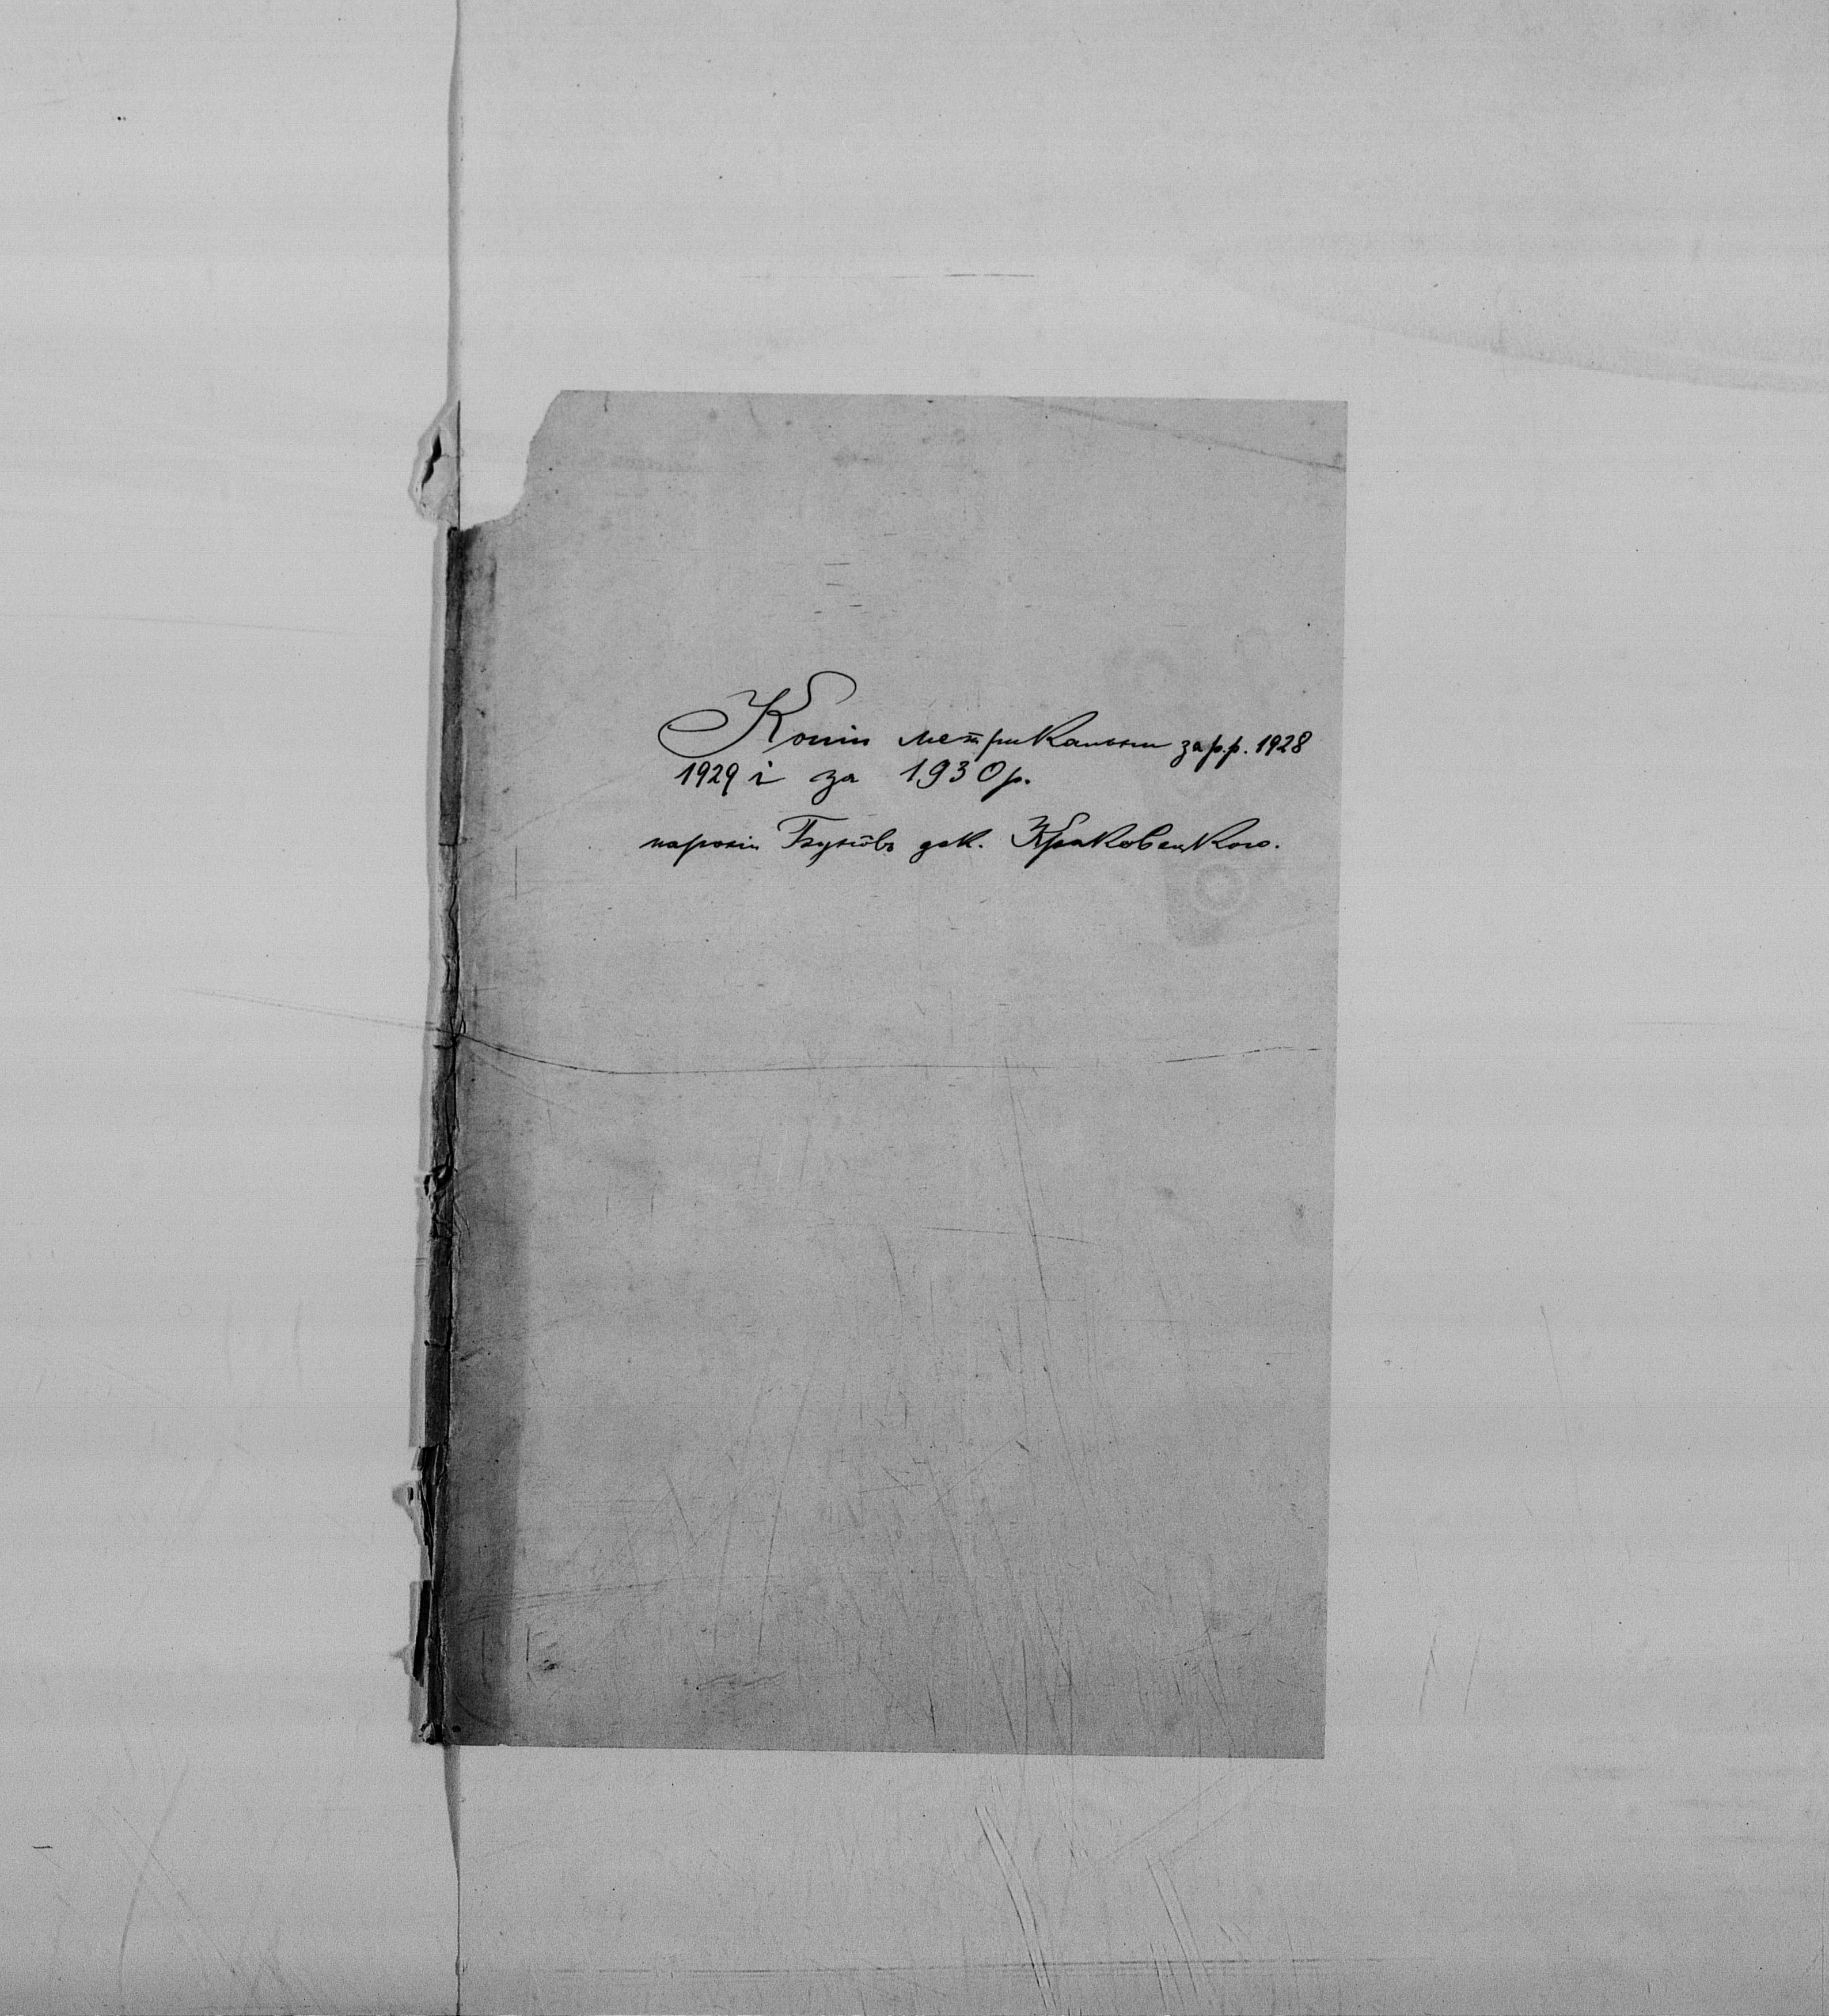 Копіи метрикальни за р.р. 1928
1929 і за 1930 р.
парохіи дек. Краковецкого.